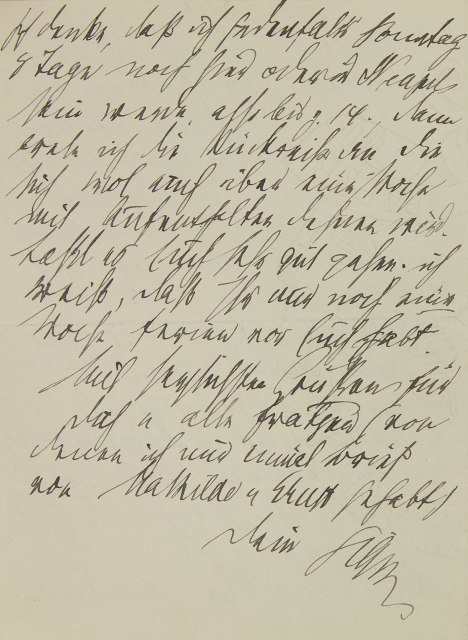 Ich denke, daß ich jedenfalls Sonntag
8 Tage noch hier oder in Neapel
sein werde, also bis z. 14., dann
trete ich die Rückreise an die
sich wol auch über eine Woche
mit Aufenthalten dehnen wird.
Laßt es Euch sehr gut gehen. ich
weiß, daß Ihr nur noch eine
Woche Ferien vor Euch habt.
Mit herzlichsten Grüßen für
dich u alle Fratzen (von
denen ich nur einmal Brief
von Mathilde u Ernst gehabt)
dein